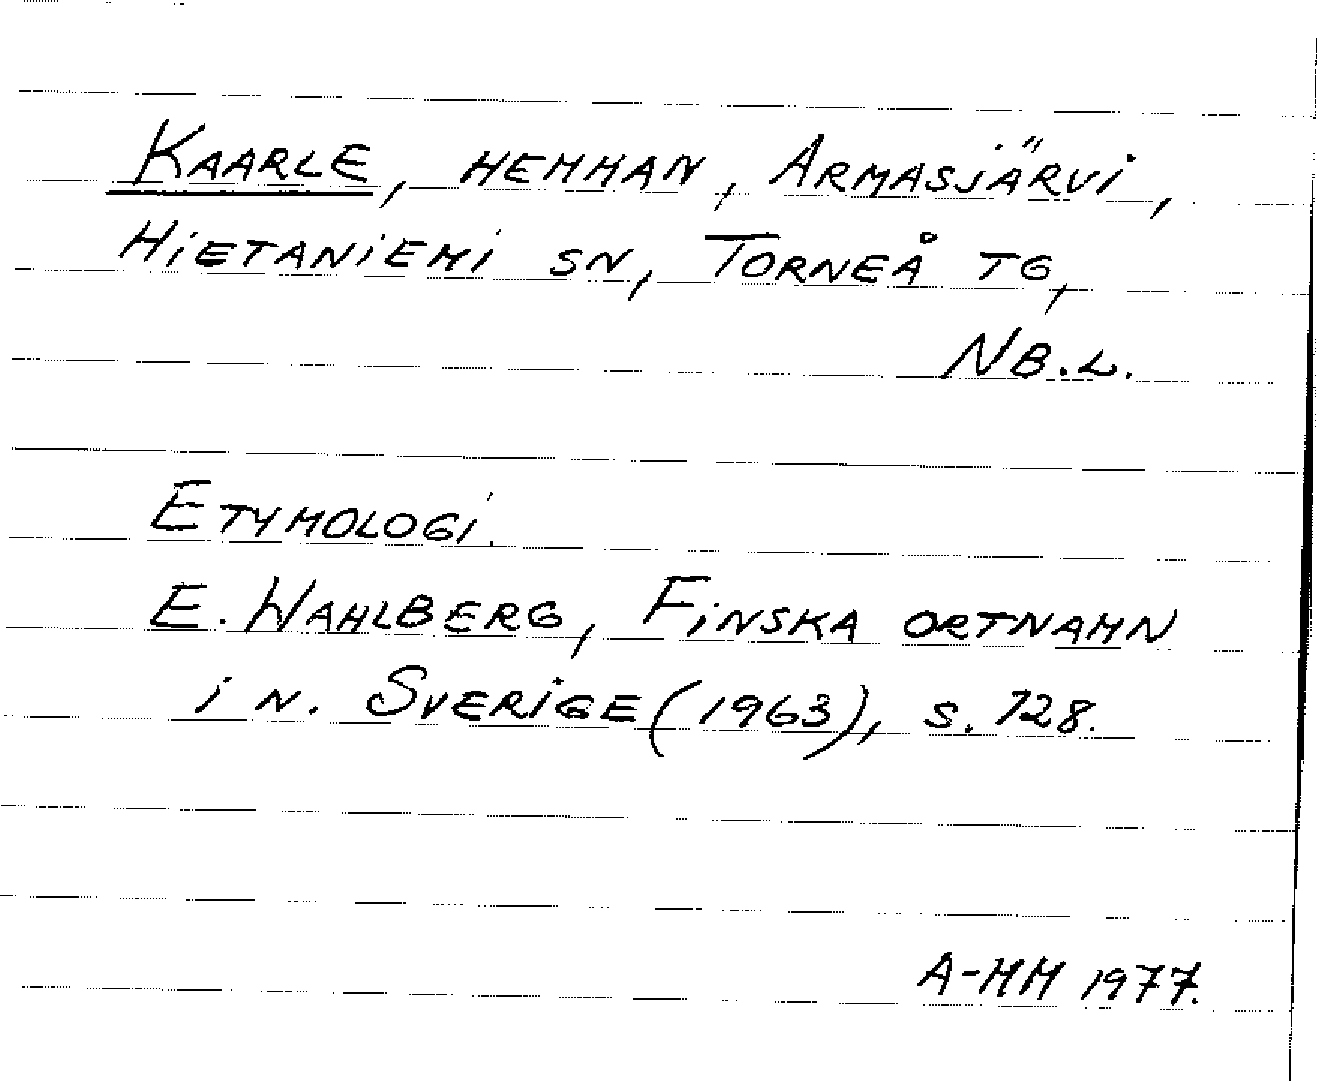 KAARLE, HEMMAN, ARMASJÄRVI,
HIETANIEMI SN, TORNEÅ TG,
NB.L.
ETYMOLOGI.
E. WAHLBERG, FINSKA ORTNAMN
I N. SVERIGE (1963), S. 128.
A-MM 1977.